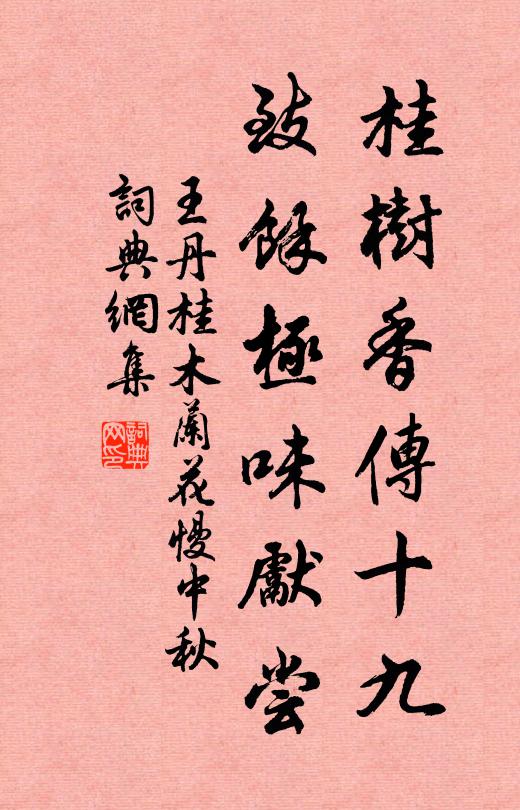 桂樹香傳十九
致餘極味獻嘗
王丹桂木蘭花慢中秋
詞典網集
詞典網印